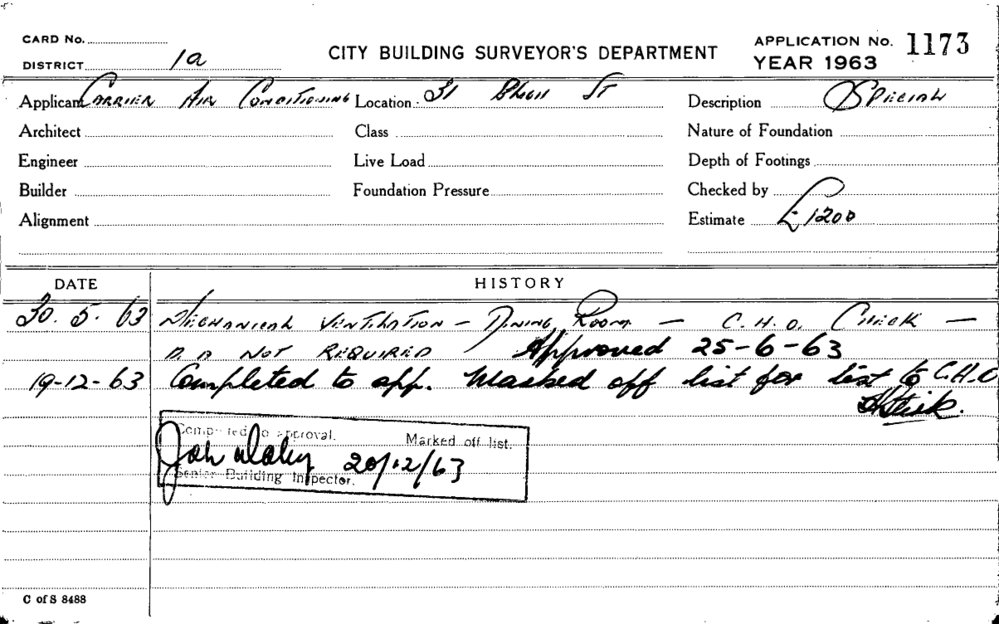 CARD No.
DISTRICT 1a
CITY BUILDING SURVEYOR'S DEPARTMENT
APPLICATION No. 1173
YEAR 1963
Applicant CARRIER AIR CONDITIONING Location 31 BLIGH ST Description SPECIAL
Architect Class Nature of Foundation
Engineer Live Load Depth of Footings
Builder Foundation Pressure Checked by
Alignment Estimate £1200
DATE HISTORY
30. 5. 63 MECHANICAL VENTILATION — DINING ROOM — C.H.O. CHECK —
D.A NOT REQUIRED Approved 25-6-63
19-12-63 Completed to app. Marked off list for test to C.H.O
Completed to approval. Marked off list.
20/12/63
Senior Building Inspector.
C of S 8488